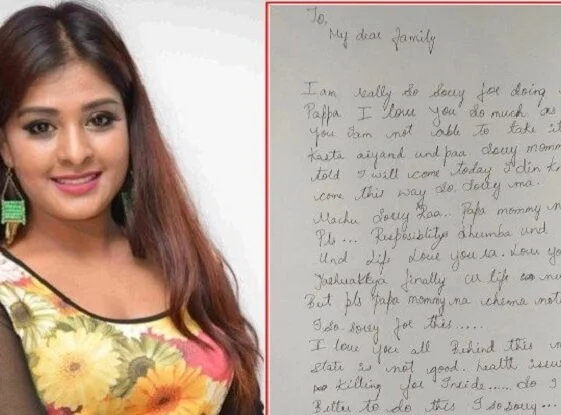 To,
My dear family
I am really so sorry for doing
Pappa I love you so much as
you I am not able to take it
Kasta aiyand und paa. Sorry mommy
told I will come today I din kn
come this way so sorry ma.
Machu Sorry Raa.. Papa mommy n
Pls... Resposiblitys dhumba und
Und life Love you ra. Love yo
finally life ne
But pls Papa mommy na chenna not
I so sorry for this.....
I love you all Behind this m
state is not good. health issue
Killing for Inside..... So I
Better to do this I so sorry...